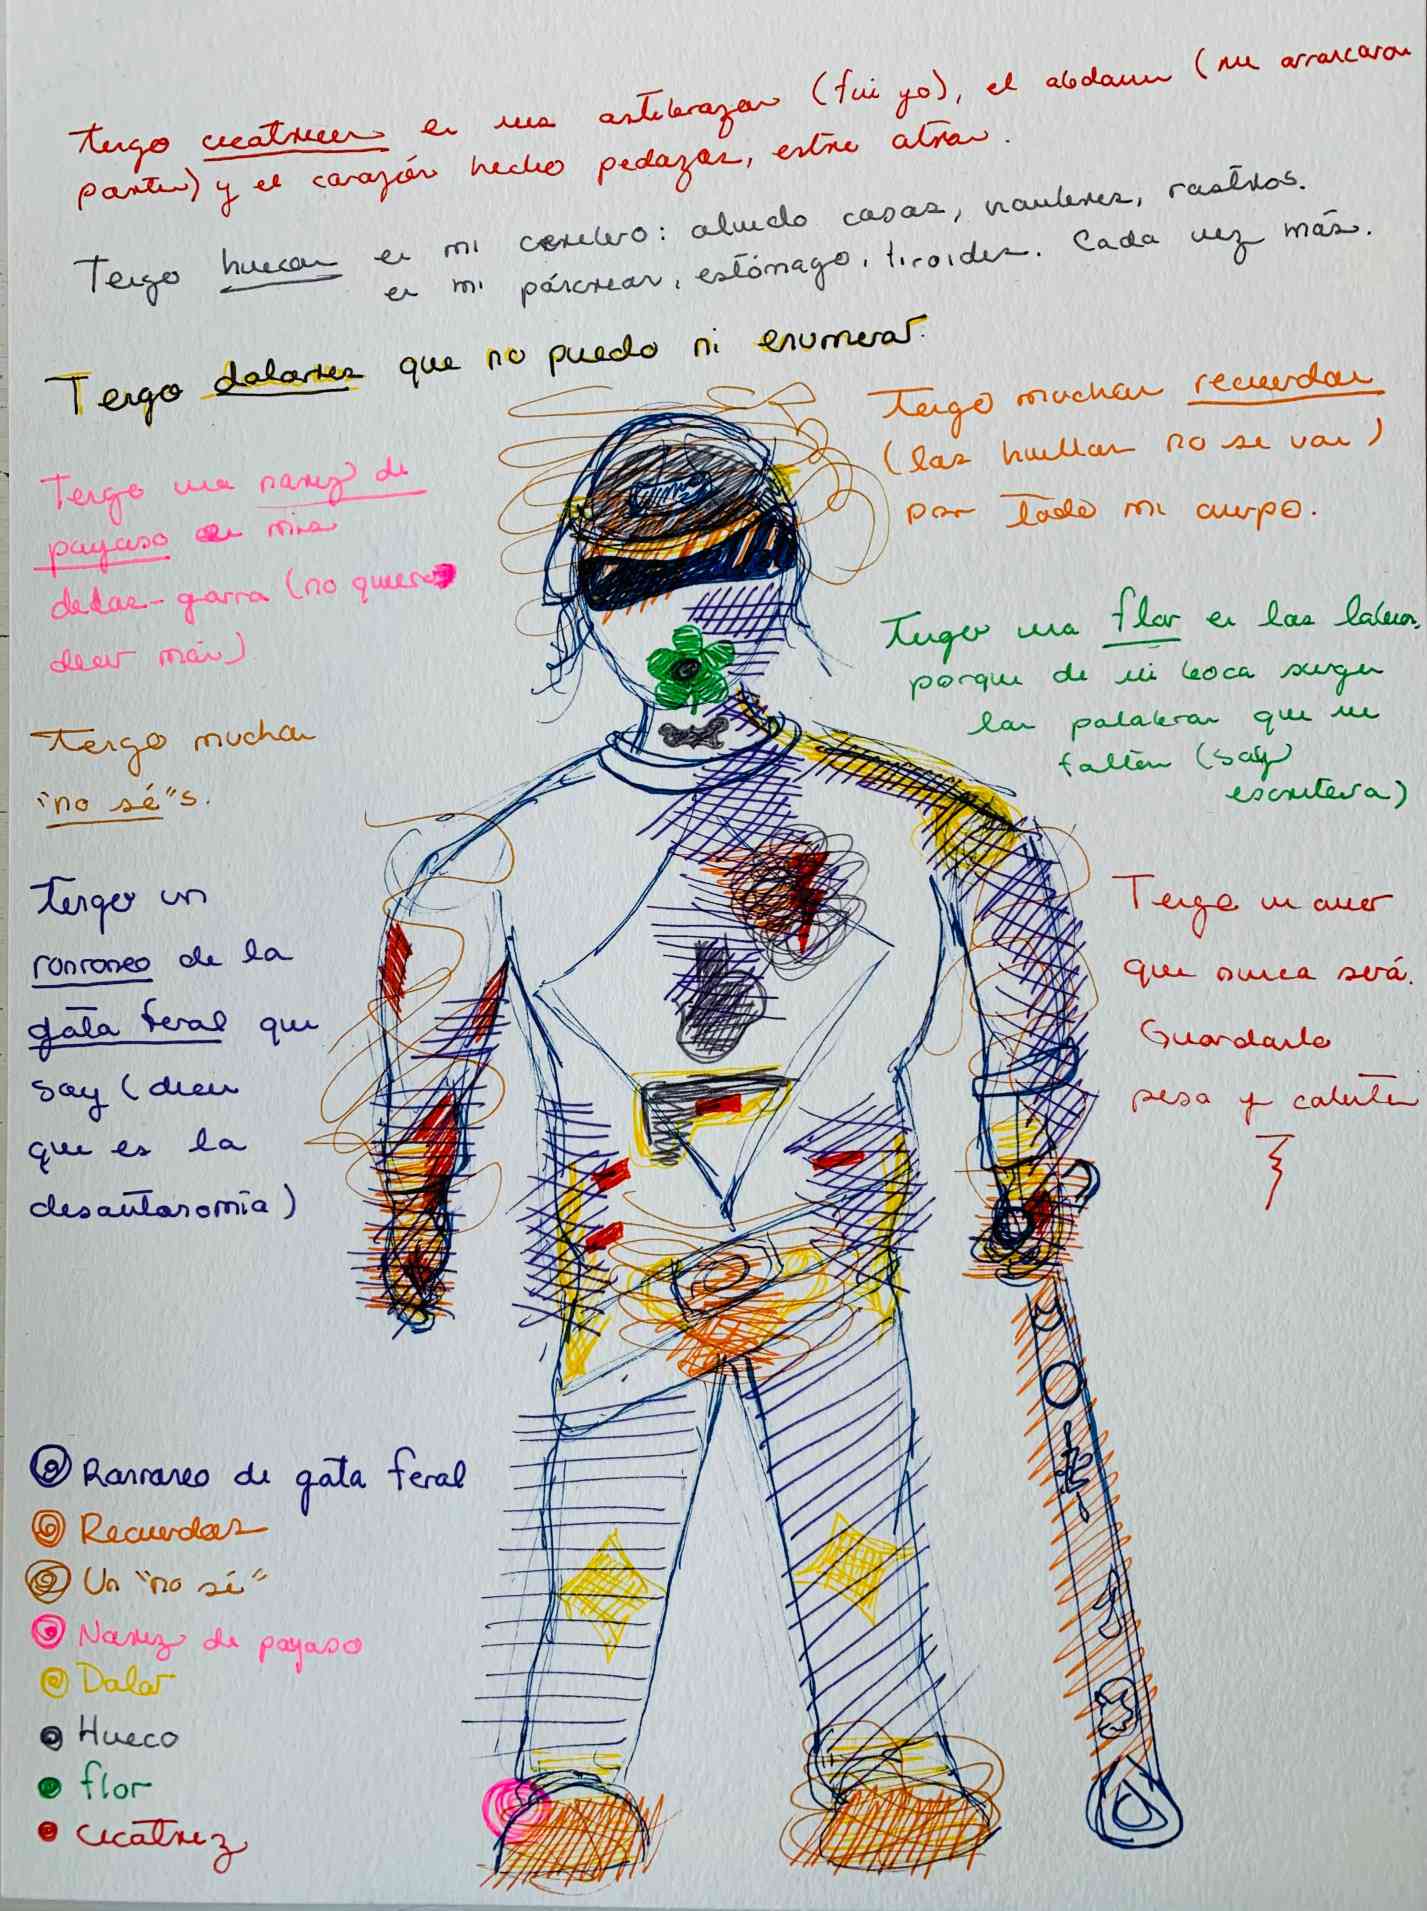 Tengo cicatrices en mis antebrazos (fui yo), el abdomen (me arrancaron
partes) y el corazón hecho pedazos, entre otras.
Tengo huecos en mi cerebro: olvido cosas, nombres, rostros.
en mi páncreas, estómago, tiroides. Cada vez más.
Tengo dolores que no puedo ni enumerar.
Tengo muchos recuerdos
(las huellas no se van)
por todo mi cuerpo.
Tengo una nariz de
payaso en mis
dedos-garra (no quiero
decir más)
Tengo una flor en los labios,
porque de mi boca surgen
las palabras que me
falten (soy
escritora)
Tengo muchos
"no sé"s.
Tengo un
ronroneo de la
gata feral que
soy (dicen
que es la
disautonomía)
Tengo un amor
que nunca será.
Guardarlo
pesa y
Ronroneo de gata feral
Recuerdos
Un "no sé"
Nariz de payaso
Dolor
Hueco
flor
cicatriz